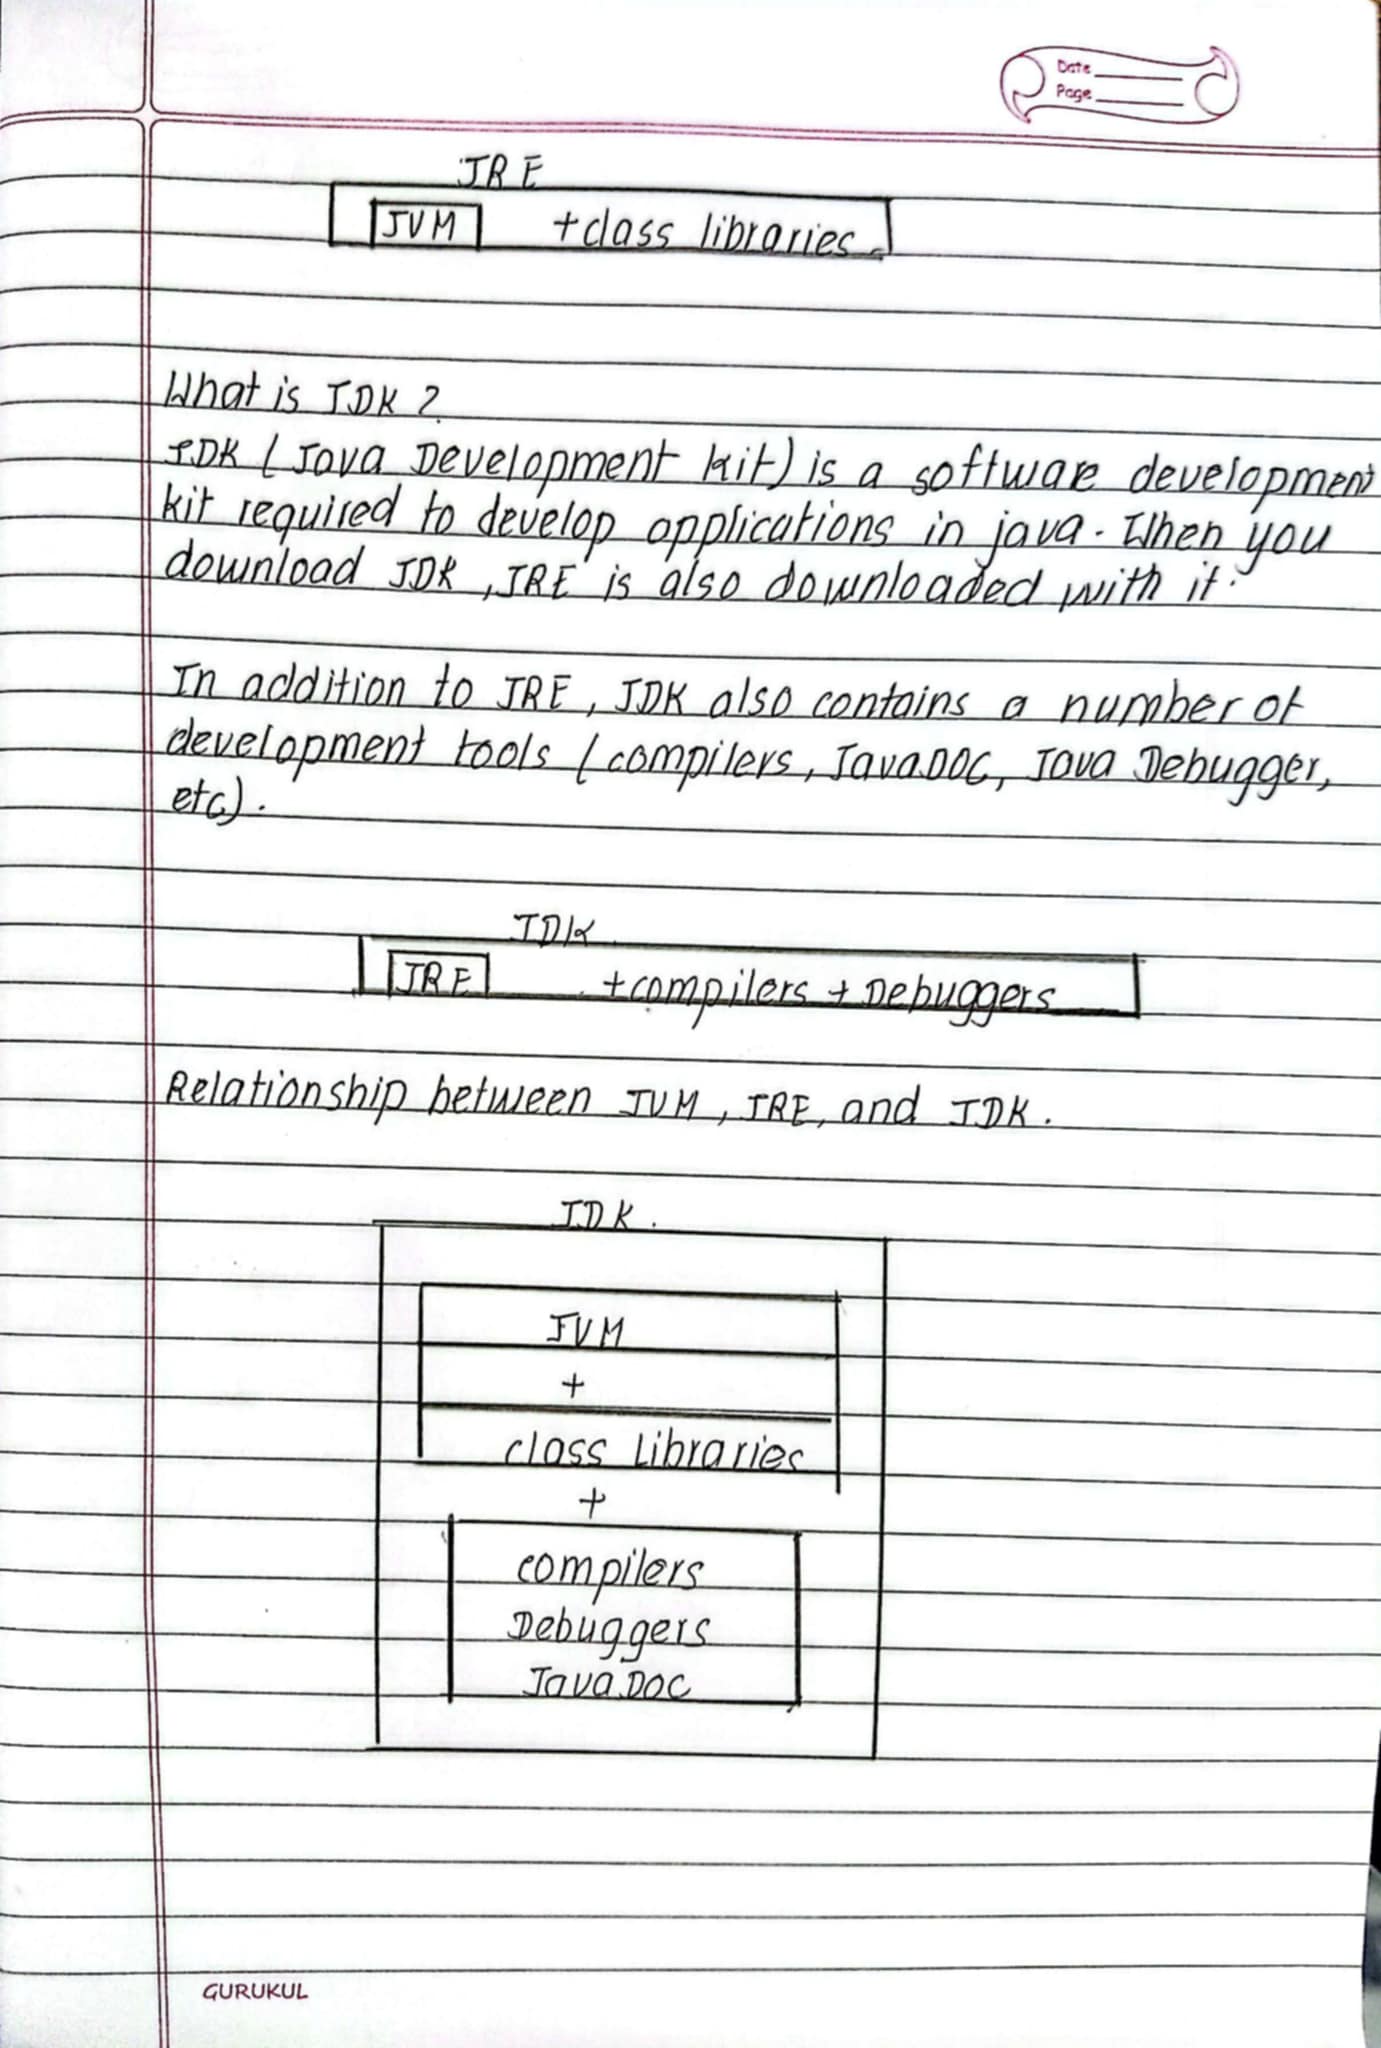 Date
Page
JRE
JVM +class libraries
What is JDK ?
JDK ( Java Development kit) is a software development
kit required to develop applications in java. When you
download JDK, JRE is also downloaded with it.
In addition to JRE, JDK also contains a number of
development tools (compilers, JavaDOC, Java Debugger,
etc).
JDK
JRE +compilers + Debuggers
Relationship between JVM, JRE, and JDK.
JDK.
JVM
+
class Libraries
+
compilers
Debuggers
JavaDOC
GURUKUL